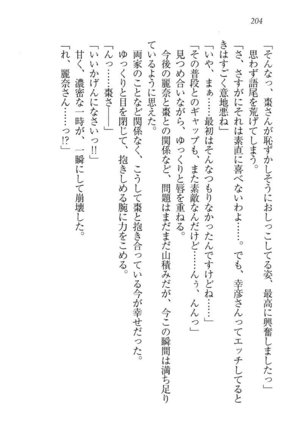 204
「そんなっ、棗さんが恥ずかしそうにおしっこしてる姿、最高に興奮しましたっ」
思わず語尾を荒げてしまう。
「さ、さすがにそれは素直に喜べないわよ……。でも、幸彦さんってエッチしてると
きはすごく意地悪ね」
「いや、まぁ……最初はそんなつもりなかったんですけどね……」
「その普段とのギャップも、また素敵なんだけど……んぅ、んんっ」
見つめ合いながら、ゆっくりと唇を重ねる。
今後の麗奈と棗との関係など、問題はまだまだ山積みだが、今この瞬間は満ち足り
ているように思えた。
両家のことなど関係なく、こうして棗と抱き合っている今が幸せだった。
ゆっくりと目を閉じて、抱きしめる腕に力をこめる。
「んっ……棗さ――」
「いいかげんになさいっ!!」
甘く、濃密な一時が、一瞬にして崩壊した。
「れ、麗奈さん……っ!?」